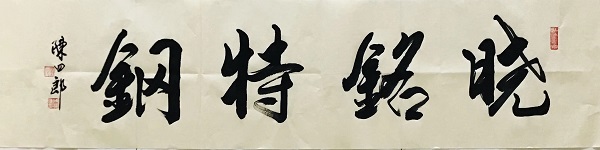 晓銘特鋼
陳四郎